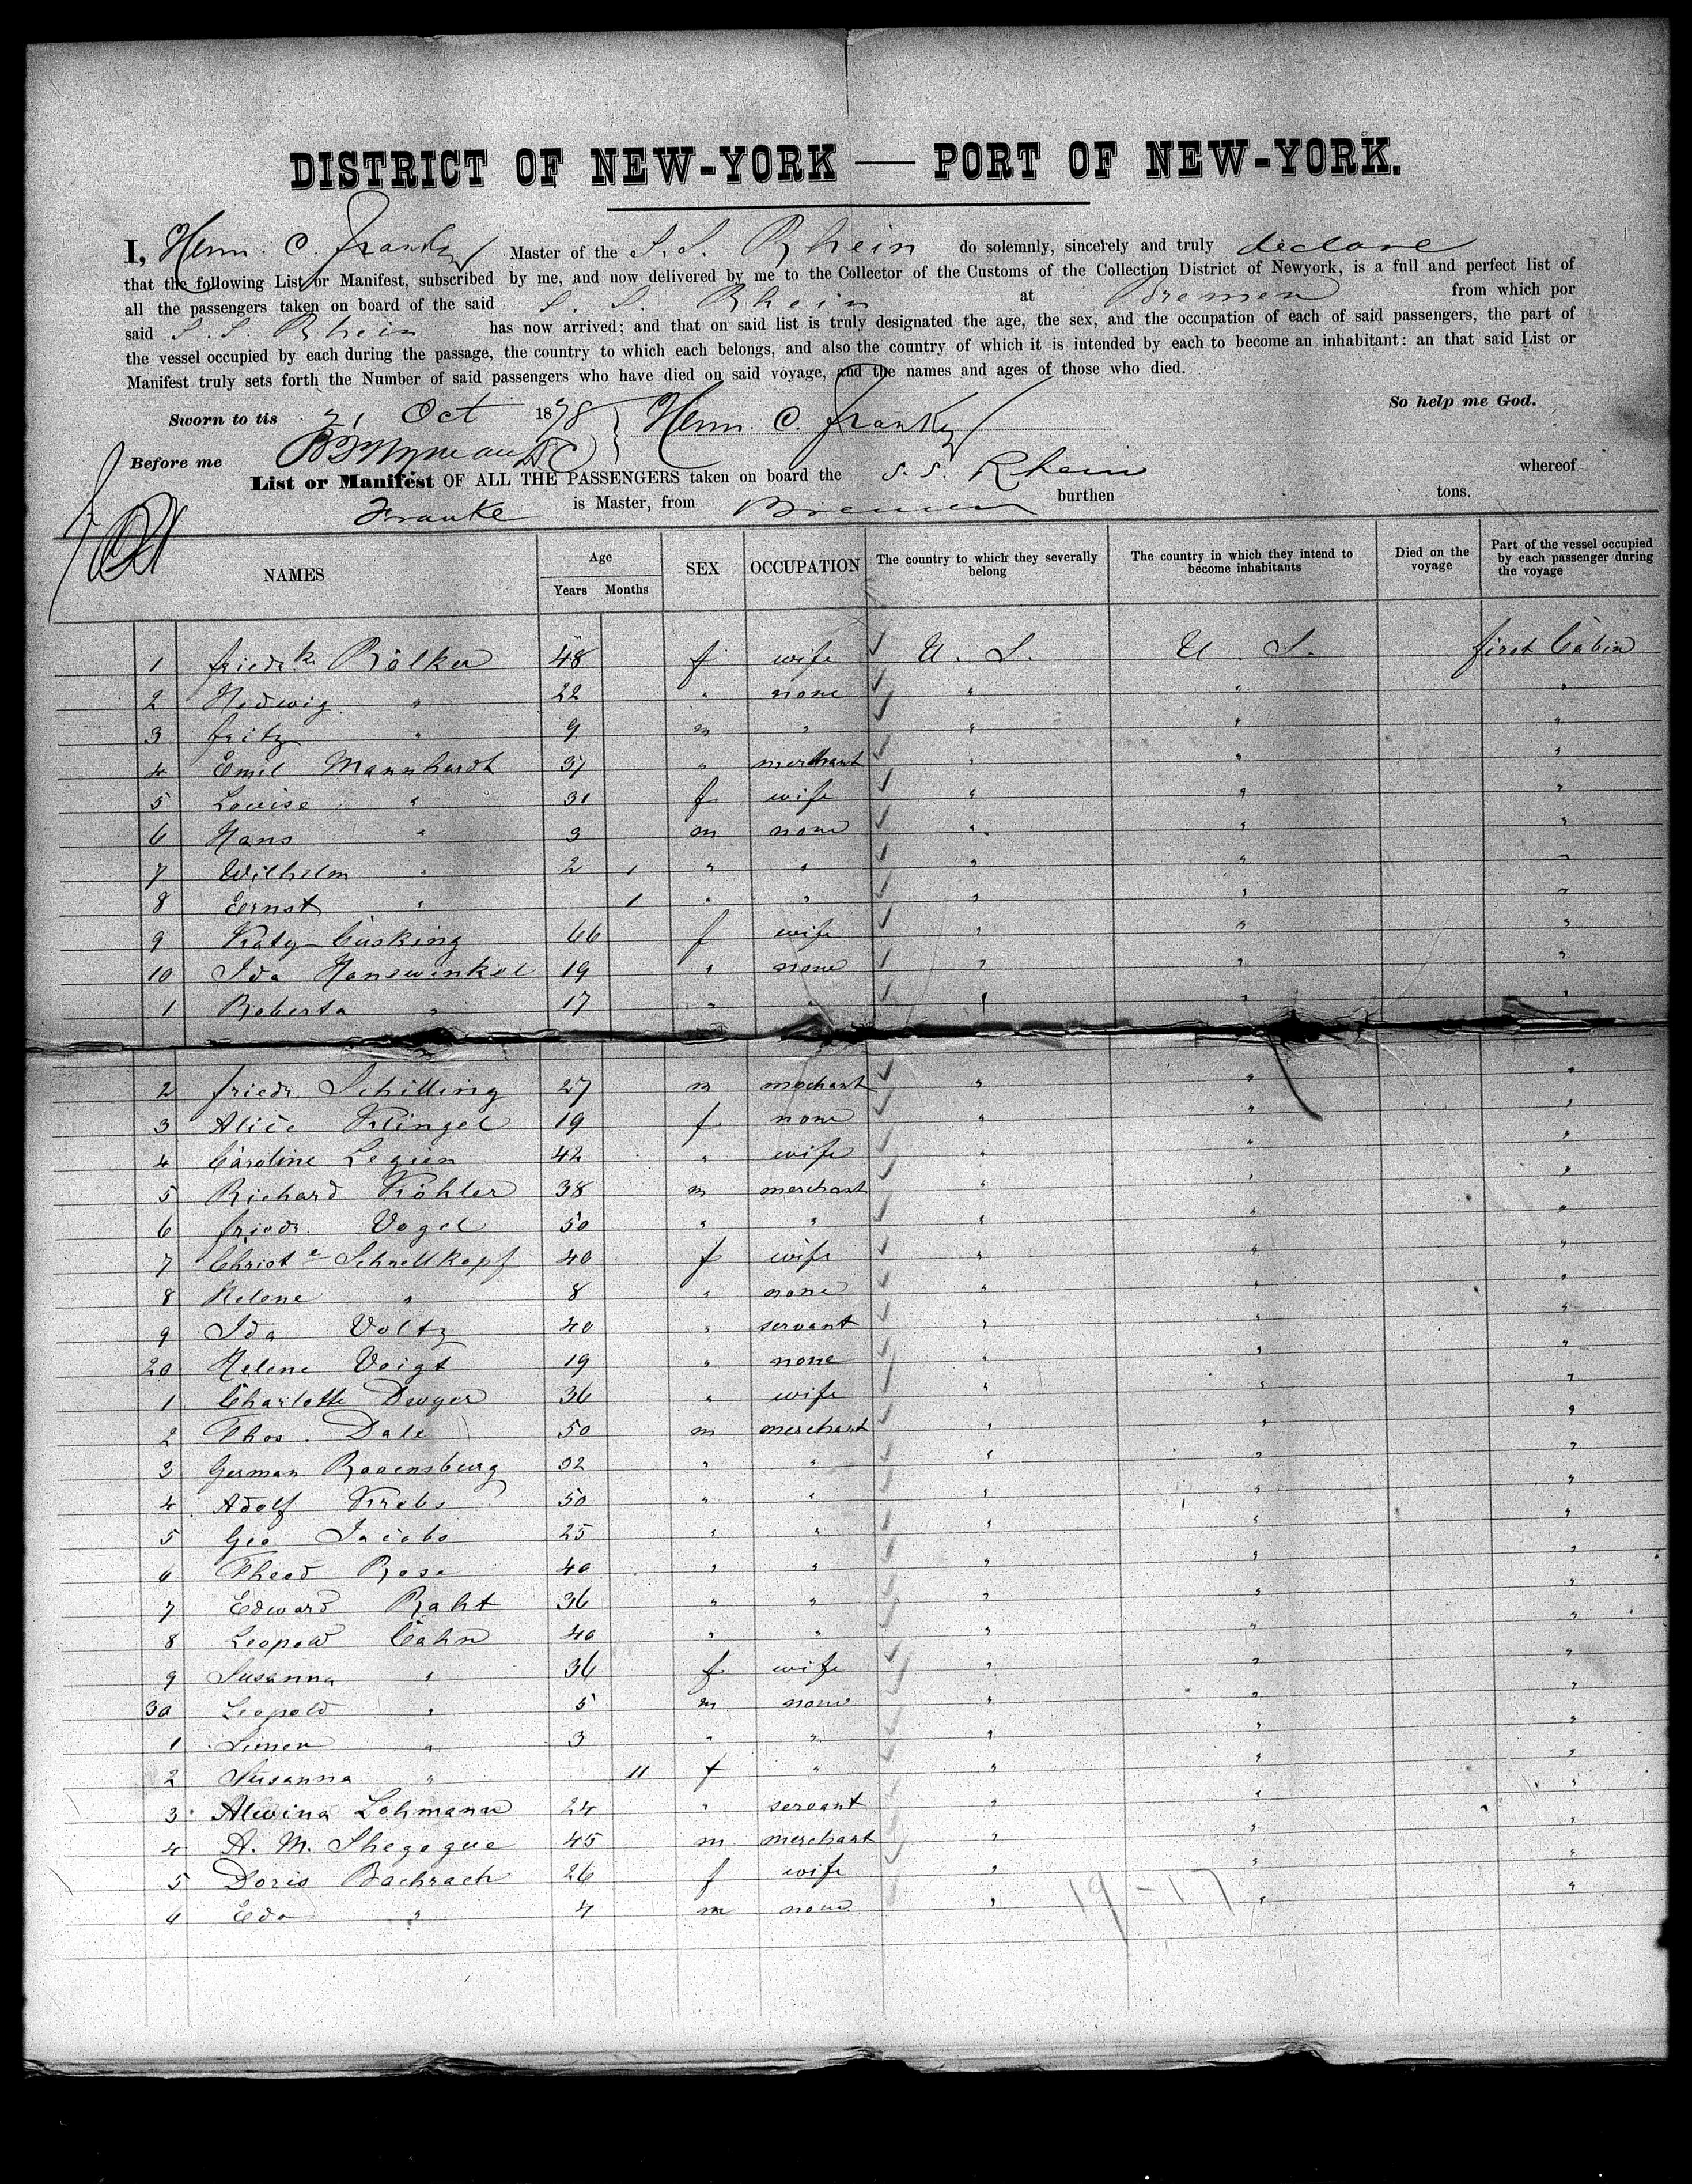 DISTRICT OF NEW-YORK — PORT OF NEW-YORK.
I, Herm. C. Franke Master of the S.S. Rhein do solemnly, sincerely and truly declare
that the following List or Manifest, subscribed by me, and now delivered by me to the Collector of the Customs of the Collection District of Newyork, is a full and perfect list of
all the passengers taken on board of the said S. S. Rhein at Bremen from which por
said S. S. Rhein has now arrived; and that on said list is truly designated the age, the sex, and the occupation of each of said passengers, the part of
the vessel occupied by each during the passage, the country to which each belongs, and also the country of which it is intended by each to become an inhabitant: an that said List or
Manifest truly sets forth the Number of said passengers who have died on said voyage, and the names and ages of those who died.
So help me God.
Sworn to tis 21 Oct 1878 Herm. C. Franke
Before me
List or Manifest OF ALL THE PASSENGERS taken on board the S. S. Rhein whereof
Franke is Master, from Bremen burthen tons.
NAMES Age Years Months SEX OCCUPATION The country to which they severally belong The country in which they intend to become inhabitants Died on the voyage Part of the vessel occupied by each passenger during the voyage
1 Friedrk. Rölker 48 f wife U. S. U. S. first Cabin
2 Hedwig " 22 " none " " "
3 Fritz " 9 m " " " "
4 Emil Mannhardt 37 " merchant " " "
5 Louise " 31 f wife " " "
6 Hans " 3 m none " " "
7 Wilhelm " 2 1 " " " " "
8 Ernst " 1 " " " " "
9 Katy Cusking 66 f wife " " "
10 Ida Hanewinkel 19 " none " " "
1 Roberta " 17 " " " " "
2 Friedr. Schilling 27 m mechant " " "
3 Alice Klingel 19 f none " " "
4 Caroline Legien 42 " wife " " "
5 Richard Köhler 38 m merchant " " "
6 Friedr. Vogel 50 " " " " "
7 Christe Schnellkopf 40 f wife " " "
8 Helene " 8 " none " " "
9 Ida Voltz 40 " servant " " "
20 Helene Voigt 19 " none " " "
1 Charlotte 36 " wife " " "
2 Thos. Dale 50 m merchant " " "
3 German Ravensburg 32 " " " " "
4 Adolf Krebs 50 " " " " "
5 Geo Jacobs 25 " " " " "
6 Theod Rose 40 " " " " "
7 Edward Raht 36 " " " " "
8 Leopold Cahn 40 " " " " "
9 Susanna " 36 f wife " " "
30 Leopold " 5 m none " " "
1 Simon " 3 " " " " "
2 Susanna " 11 f " " " "
3 Alwina Lohmann 24 " servant " " "
4 A. M. Shegogue 45 m merchant " " "
5 Doris Bachrach 26 f wife " " "
6 " 4 m none " " "
19-17